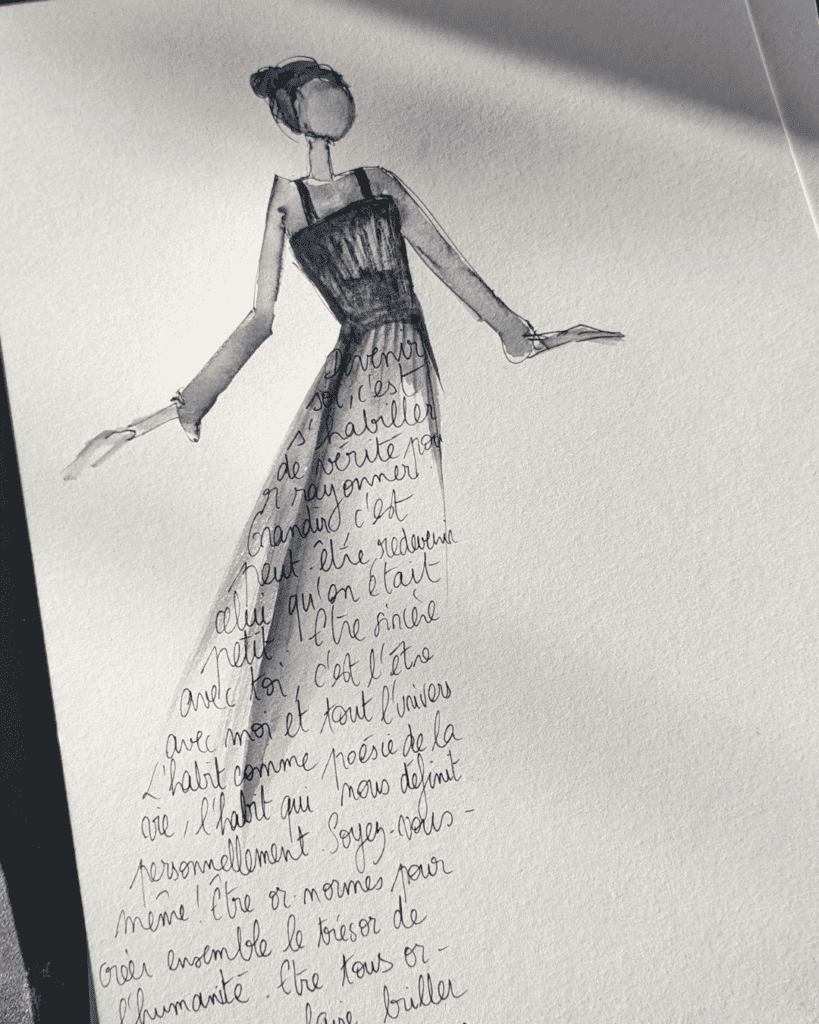 Devenir
soi, c'est
s'habiller
de vérité pou
r rayonner
Grandir c'est
peut-être redevenir
celui qu'on était
petit. Etre sincère
avec toi, c'est l'être
avec moi et tout l'univers
L'habit comme poésie de la
vie, l'habit qui nous définit
personnellement. Soyez-vous-
même! Être or-normes pour
créer ensemble le trésor de
l'humanité. Etre tous or-
faire briller